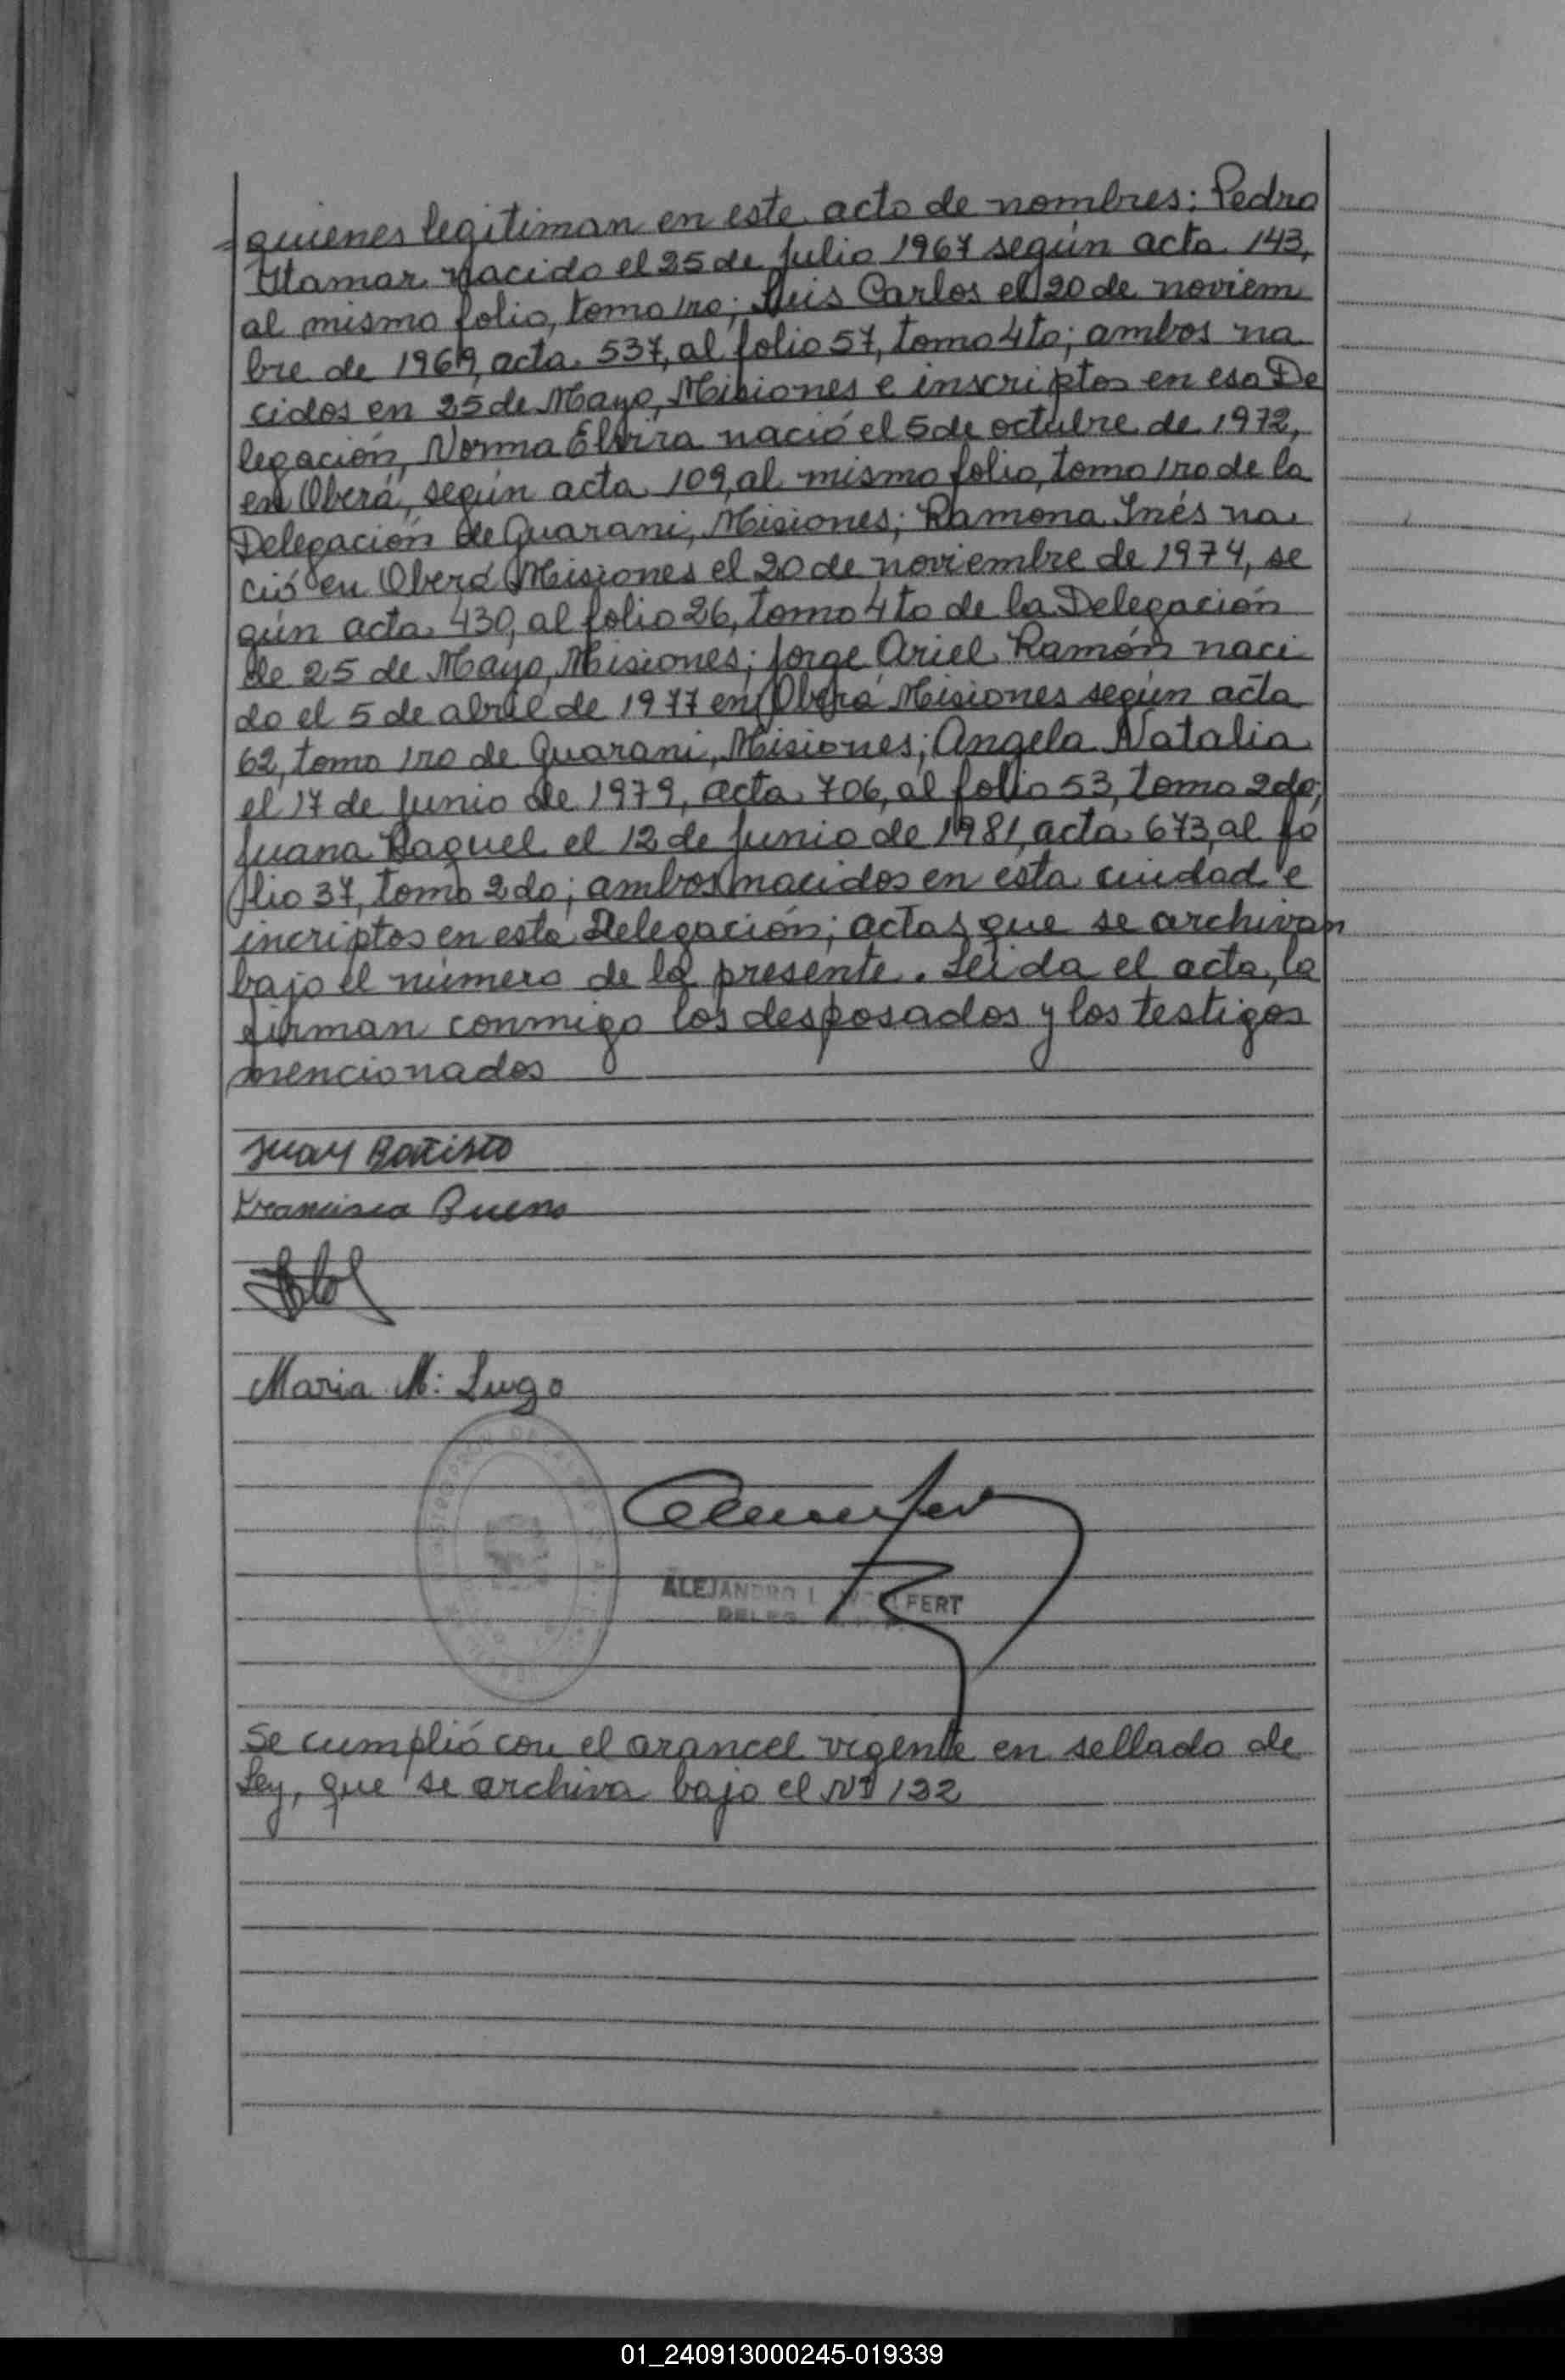 quienes legitiman en este acto de nombres: Pedro
Itamar nacido el 25 de Julio 1967 según acta 143,
al mismo folio, tomo 1ro; Luis Carlos el 20 de noviem
bre de 1969, acta 537, al folio 57, tomo 4to; ambos na
cidos en 25 de Mayo, Misiones e inscriptos en esa De
legación, Norma Elvira nació el 5 de octubre de 1972,
en Oberá, según acta 109, al mismo folio, tomo 1ro de la
Delegación de Guaraní, Misiones; Ramona Inés na
ció en Oberá Misiones el 20 de noviembre de 1974, se
gún acta 430, al folio 26, tomo 4to de la Delegación
de 25 de Mayo, Misiones; Jorge Ariel Ramón naci
do el 5 de abril de 1977 en Oberá Misiones según acta
62, tomo 1ro de Guaraní, Misiones; Angela Natalia
el 17 de Junio de 1979, acta 706, al folio 53, tomo 2do;
Juana Raquel el 12 de Junio de 1981, acta 673, al fo
lio 37, tomo 2do; ambos nacidos en esta ciudad e
incriptos en esta Delegación; actas que se archivan
bajo el número de la presente. Leída el acta, la
firman conmigo los desposados y los testigos
mencionados
Juan Batisto
Francisca Bueno
Maria M: Lugo
ALEJANDRO FERT
Se cumplió con el arancel vigente en sellado de
Ley, que se archiva bajo el Nº 132
01_240913000245-019339